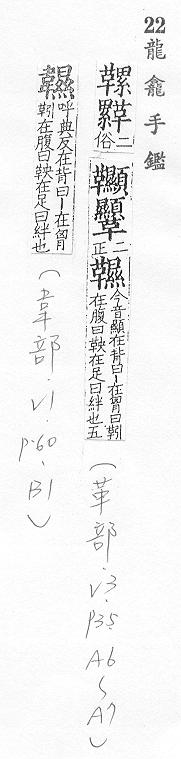 22 龍龕手鑑
二俗韅二正今音顯在背曰丨在胷曰靷在腹曰鞅在足曰絆也五(革部.v3.p35.A6~A7)
呼典反在背曰丨在胷曰靷在腹曰鞅在足曰絆也(韋部.v1.p.60.B1)